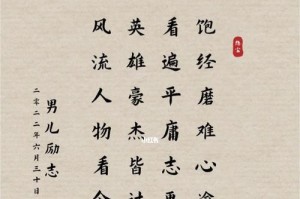 饱经磨难心
看遍平庸志更
英雄豪杰皆过
风流人物看今
男儿励志
二零二二年六月三十日